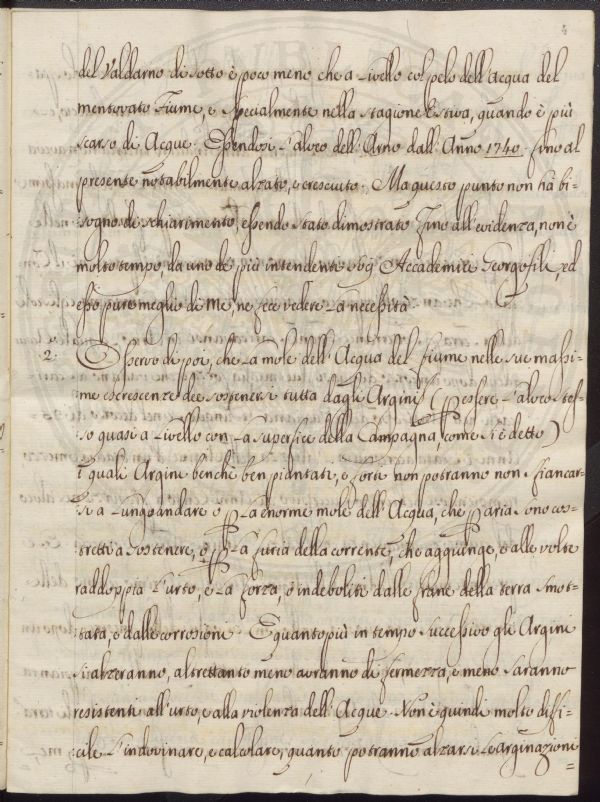 del Valdarno di sotto è poco meno che a Livello col pelo dell'Acqua del
mentovato Fiume, e specialmente nella stagione Estiva, quando è più
scarso di Acque. Essendosi l'alveo dell'Arno dall'Anno 1740. fino al
presente notabilmente alzato, e cresciuto. Ma questo punto non hà bi-
sogno di schiarimento, essendo stato dimostrato fino all'evidenza, non è
molto tempo, da uno de più intendenti Accademici Georgofili, ed
esso pure meglio di me, ne fece vedere La necessità.
2. Osservo di poi, che La mole dell'Acqua del fiume nelle sue massi-
me escrescenze dee sostenersi tutta dagli Argini (p essere l'alveo stes-
so quasi a Livello con La superfice della Campagna, come si è detto)
i quali Argini benchè ben piantati, e forti non potranno non fiancar-
si a Lungo andare o p La enorme mole dell'Acqua, che p aria sono cos-
tretti a sostenere, o p La furia della corrente, che aggiunge, e alle volte
raddoppia l'urto, e La forza, o indeboliti dalle frane della terra smot-
tata, e dalle corrosioni. E quanto più in tempo successivo gli Argini
si alzeranno, altrettanto meno avranno di fermezza, e meno saranno
resistenti all'urto, e alla violenza dell'Acque. Non è quindi molto difi-
cile l'indovinare, e calcolare, quanto potranno alzarsi Le arginazioni